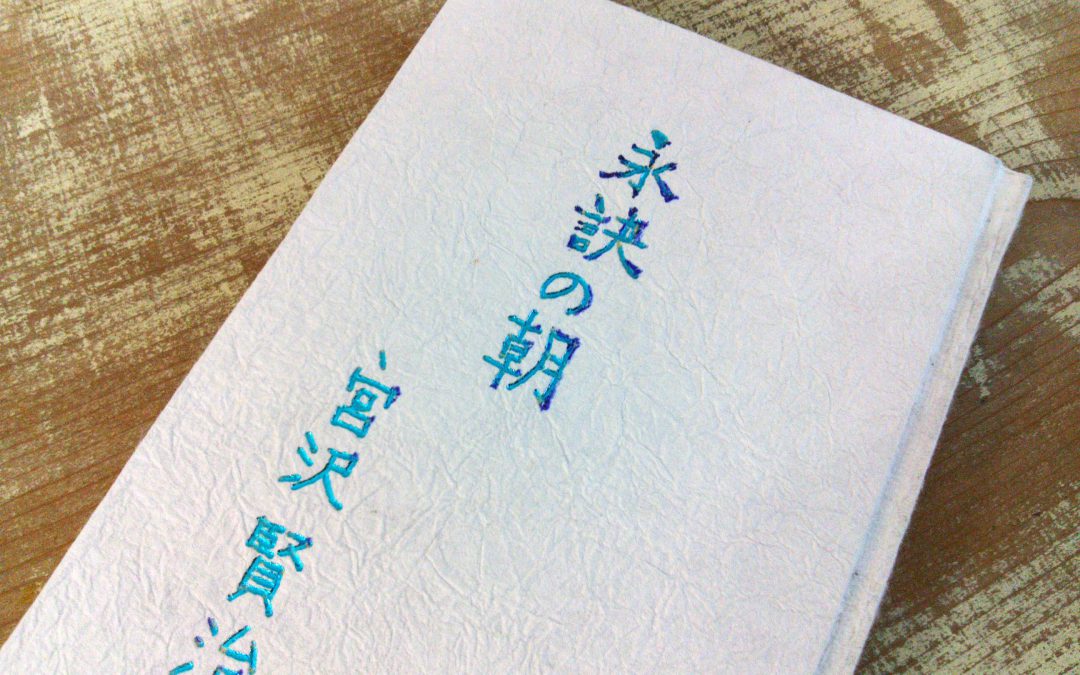 永訣の朝
宮沢賢治